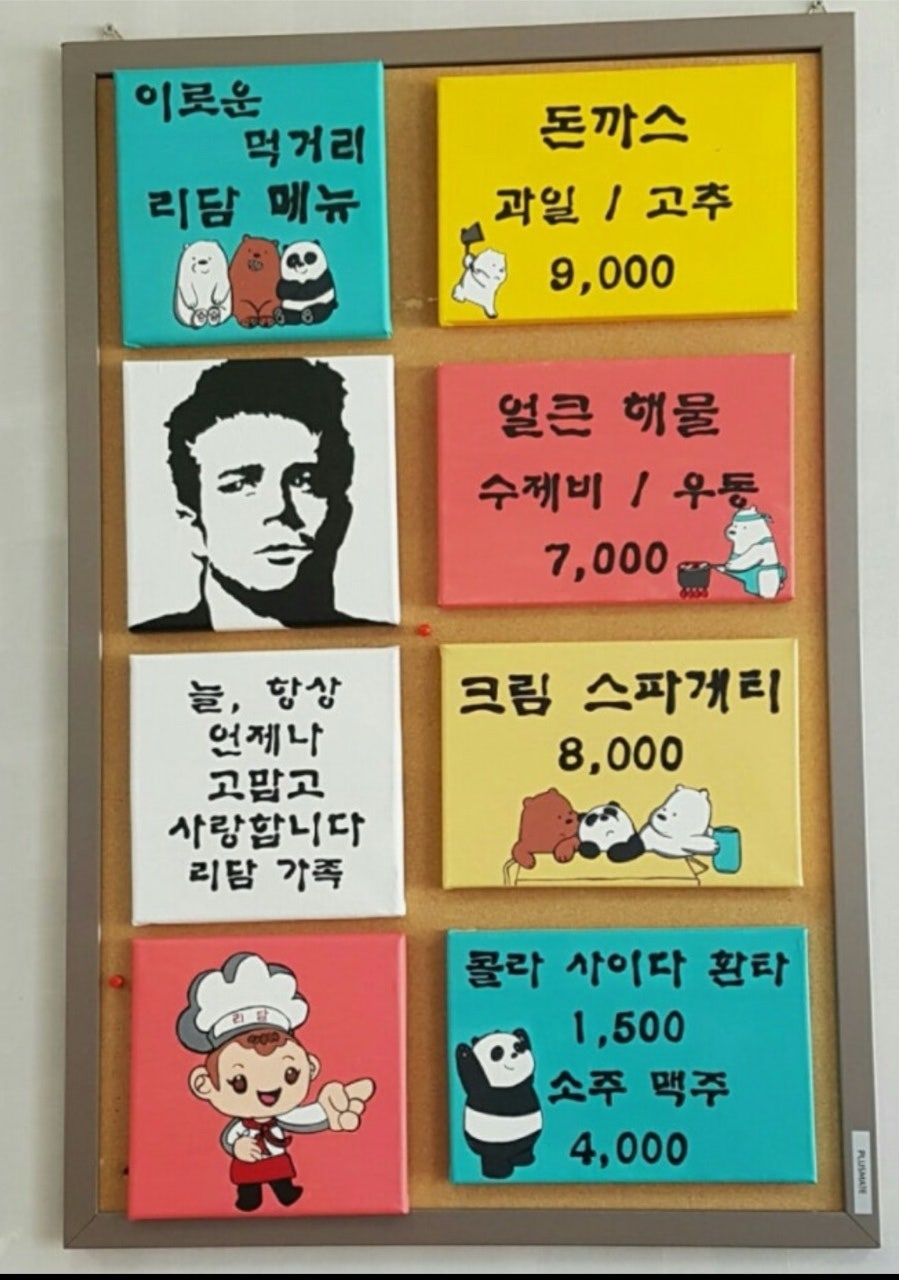 이로운
먹거리
리담 메뉴
돈까스
과일 / 고추
9,000
얼큰 해물
수제비 / 우동
7,000
늘, 항상
언제나
고맙고
사랑합니다
리담 가족
크림 스파게티
8,000
리담
콜라 사이다 환타
1,500
소주 맥주
4,000
PLUSMATE